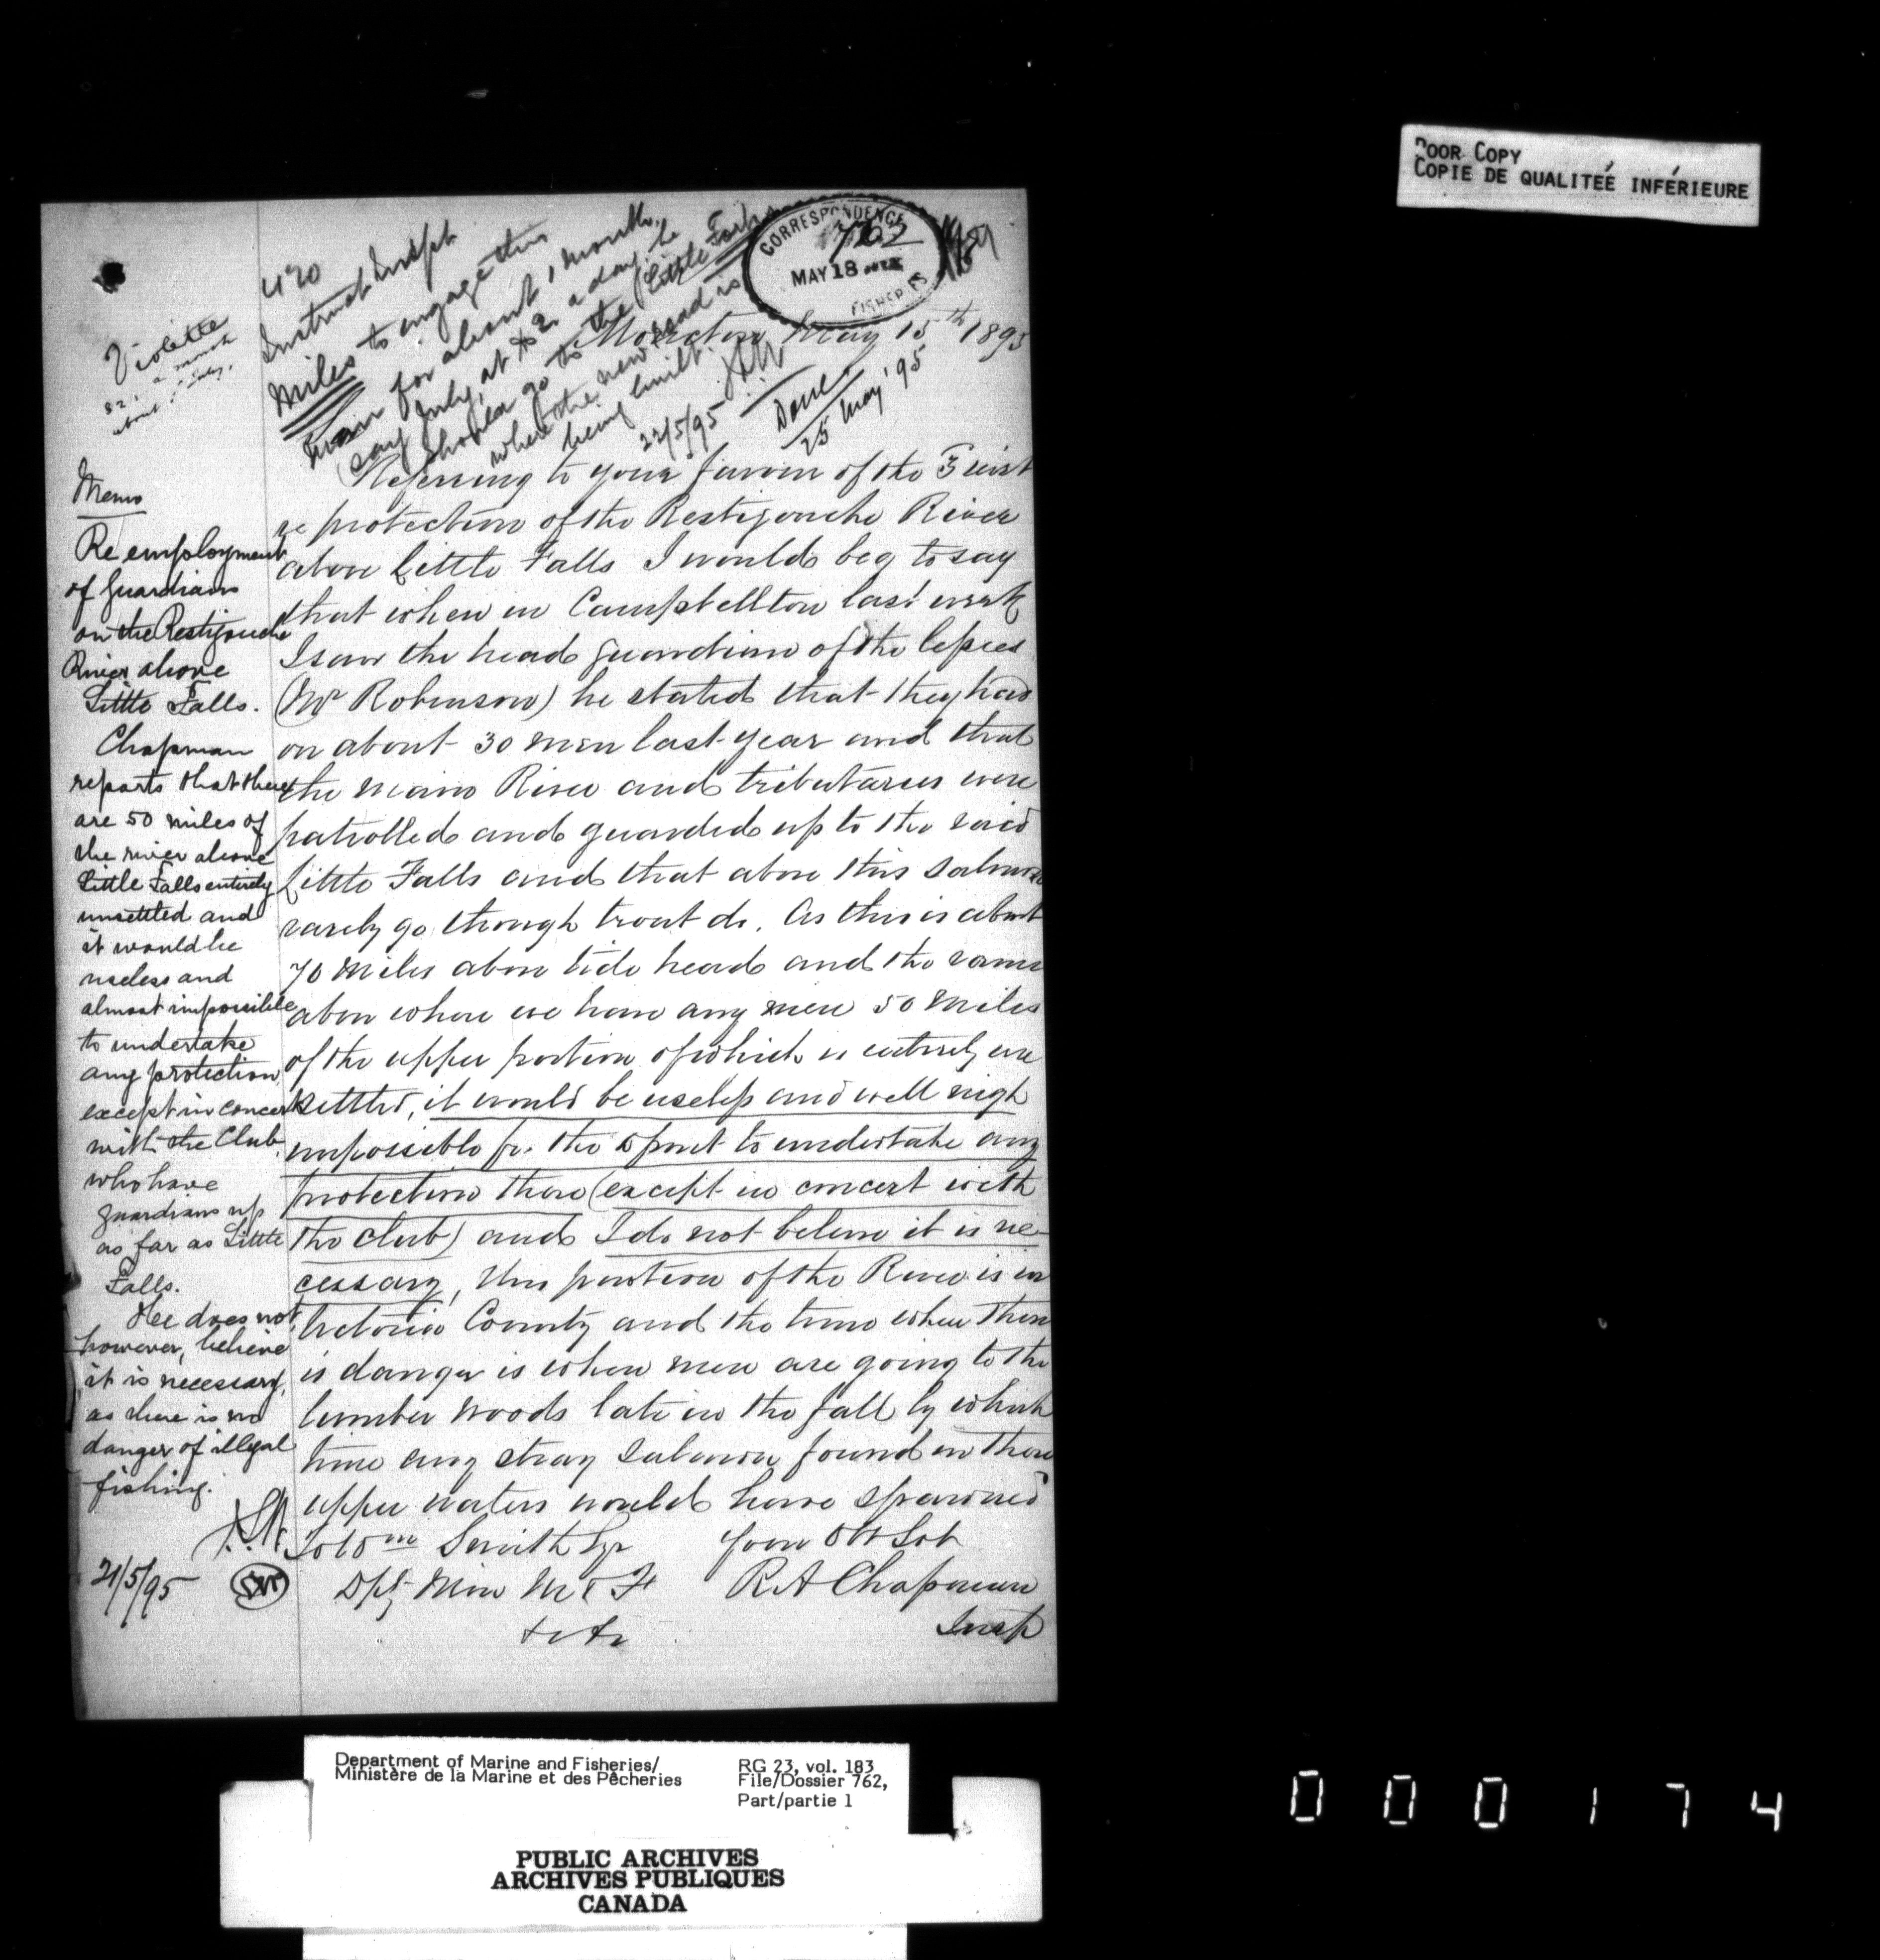 Poor Copy
Copie de qualiteé inférieure
CORRESPONDENCE
762
MAY 18 1895
FISHERIES
420
Instruct Inspt
Miles to engage this
man for about 1 month,
say July, at $2 a day; he
should go to the Little Forks
where the new road is
being built.
22/5/95
Done
25 May '95
Violette
$2,
a month
about July.
Moncton May 15th 1895
Referring to your favour of the 3 inst
re protection of the Restigouche River
above Little Falls I would beg to say
that when in Campbellton last week
I saw the head guardian of the lessees
(Mr Robinson) he stated that they had
on about 30 men last year and that
the main River and tributaries were
patrolled and guarded up to the said
Little Falls and that above this salmon
rarely go though trout do. As this is about
70 miles above tide head and the same
above where we have any men 50 miles
of the upper portion of which is entirely un
settled, it would be useless and well nigh
impossible for the Dpmt to undertake any
protection there (except in concert with
the club) and I do not believe it is ne-
cessary, this portion of the River is in
Victoria County and the time when there
is danger is when men are going to the
lumber woods late in the fall by which
time any stray salmon found in these
upper waters would have spawned
To Wm Smith Esqr
Your Obt Svt
Dpty Min M & F
R A Chapman
Insp
Memo
Re employment
of guardians
on the Restigouche
River above
Little Falls.
Chapman
reports that there
are 50 miles of
the river above
Little Falls entirely
unsettled and
it would be
useless and
almost impossible
to undertake
any protection,
except in concert
with the Club,
who have
guardians up
as far as Little
Falls.
He does not,
however, believe
it is necessary,
as there is no
danger of illegal
fishing.
21/5/95
Department of Marine and Fisheries/
Ministère de la Marine et des Pêcheries
RG 23, vol. 183
File/Dossier 762,
Part/partie 1
PUBLIC ARCHIVES
ARCHIVES PUBLIQUES
CANADA
000174